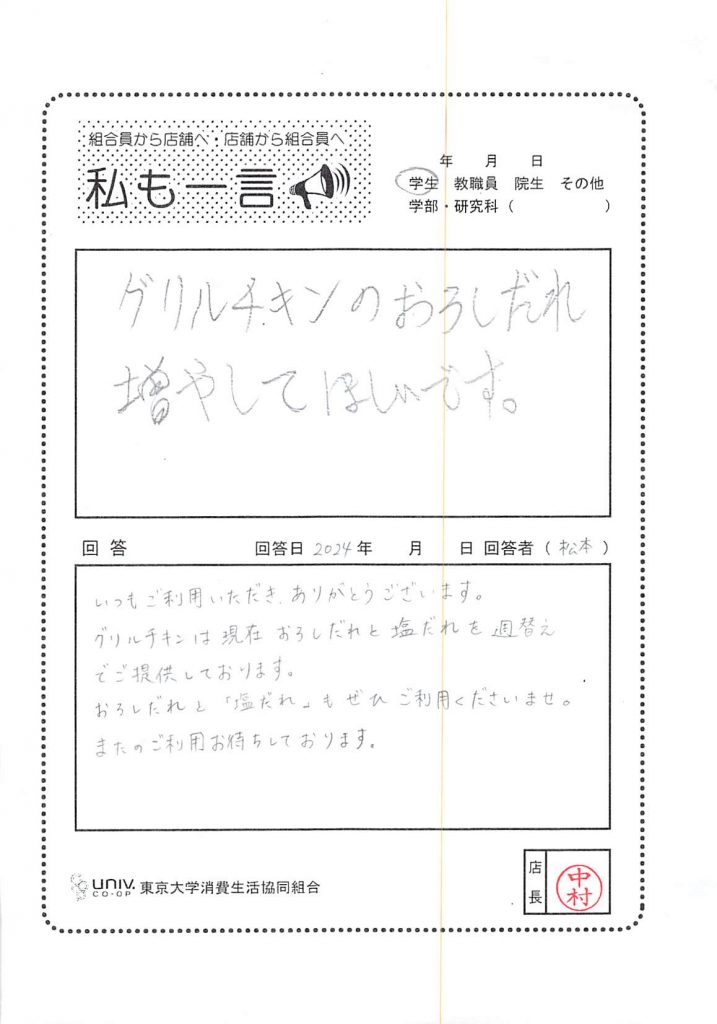 組合員から店舗へ・店舗から組合員へ
私も一言
年 月 日
学生 教職員 院生 その他
学部・研究科( )
グリルチキンのおろしだれ
増やしてほしいです。
回答 回答日 2024年 月 日 回答者(松本)
いつもご利用いただき、ありがとうございます。
グリルチキンは現在 おろしだれと塩だれを週替え
でご提供しております。
おろしだれと「塩だれ」もぜひご利用くださいませ。
またのご利用お待ちしております。
UNIV.
CO-OP
東京大学消費生活協同組合
店長
中村